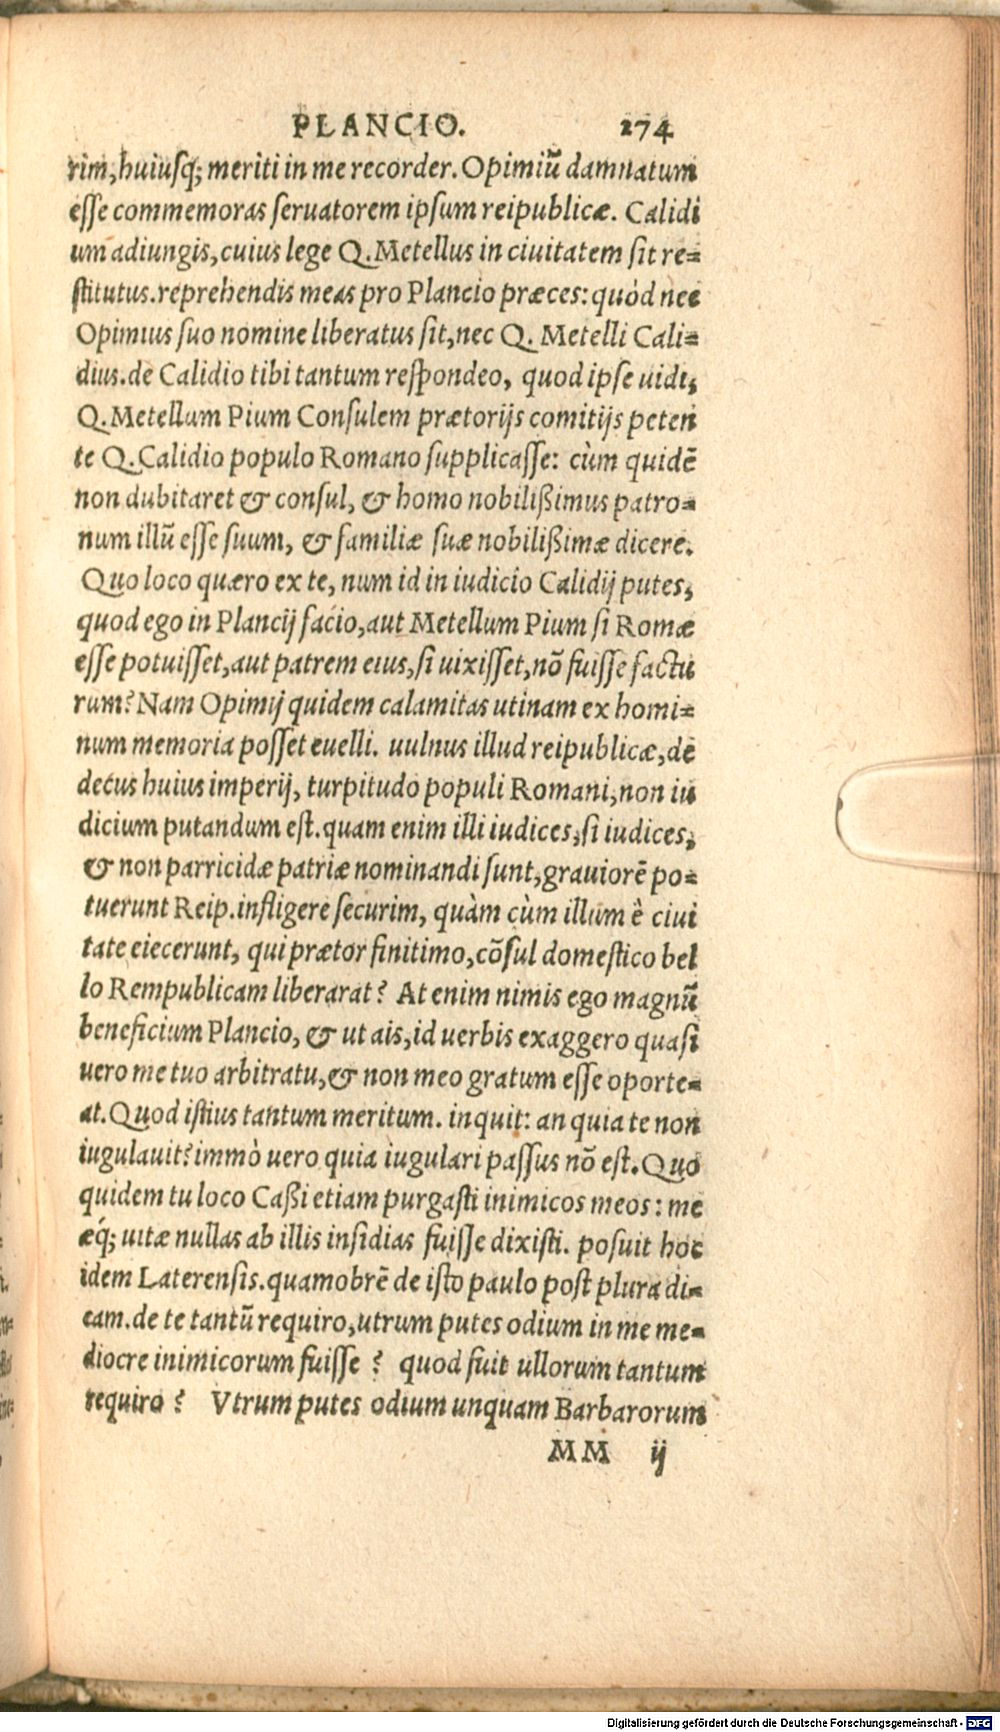 PLANCIO. 274
rim, huiusq; meriti in me recorder. Opimiũ damnatum
esse commemoras seruatorem ipsum reipublicæ. Calidi
um adiungis, cuius lege Q. Metellus in ciuitatem sit re=
stitutus. reprehendis meas pro Plancio præces: quòd nec
Opimius suo nomine liberatus sit, nec Q. Metelli Cali=
dius. de Calidio tibi tantum respondeo, quod ipse uidi,
Q. Metellum Pium Consulem prætorijs comitijs peten
te Q. Calidio populo Romano supplicasse: cùm quidẽ
non dubitaret & consul, & homo nobilißimus patro=
num illũ esse suum, & familiæ suæ nobilißimæ dicere.
Quo loco quæro ex te, num id in iudicio Calidij putes,
quod ego in Plancij facio, aut Metellum Pium si Romæ
esse potuisset, aut patrem eius, si uixisset, nõ fuisse factu
rum? Nam Opimij quidem calamitas utinam ex homi=
num memoria posset euelli. uulnus illud reipublicæ, de
decus huius imperij, turpitudo populi Romani, non iu
dicium putandum est. quam enim illi iudices, si iudices,
& non parricidæ patriæ nominandi sunt, grauiorẽ po=
tuerunt Reip. infligere securim, quàm cùm illum è ciui
tate eiecerunt, qui prætor finitimo, cõsul domestico bel
lo Rempublicam liberarat? At enim nimis ego magnũ
beneficium Plancio, & ut ais, id uerbis exaggero quasi
uero me tuo arbitratu, & non meo gratum esse oporte=
at. Quod istius tantum meritum. inquit: an quia te non
iugulauit? immò uero quia iugulari passus nõ est. Quo
quidem tu loco Caßi etiam purgasti inimicos meos: me
æq́; uitæ nullas ab illis insidias fuisse dixisti. posuit hoc
idem Laterensis. quamobrẽ de isto paulo post plura di=
cam. de te tantũ requiro, utrum putes odium in me me=
diocre inimicorum fuisse? quod fuit ullorum tantum
requiro? Vtrum putes odium unquam Barbarorum
MM ij
Digitalisierung gefördert durch die Deutsche Forschungsgemeinschaft - DFG